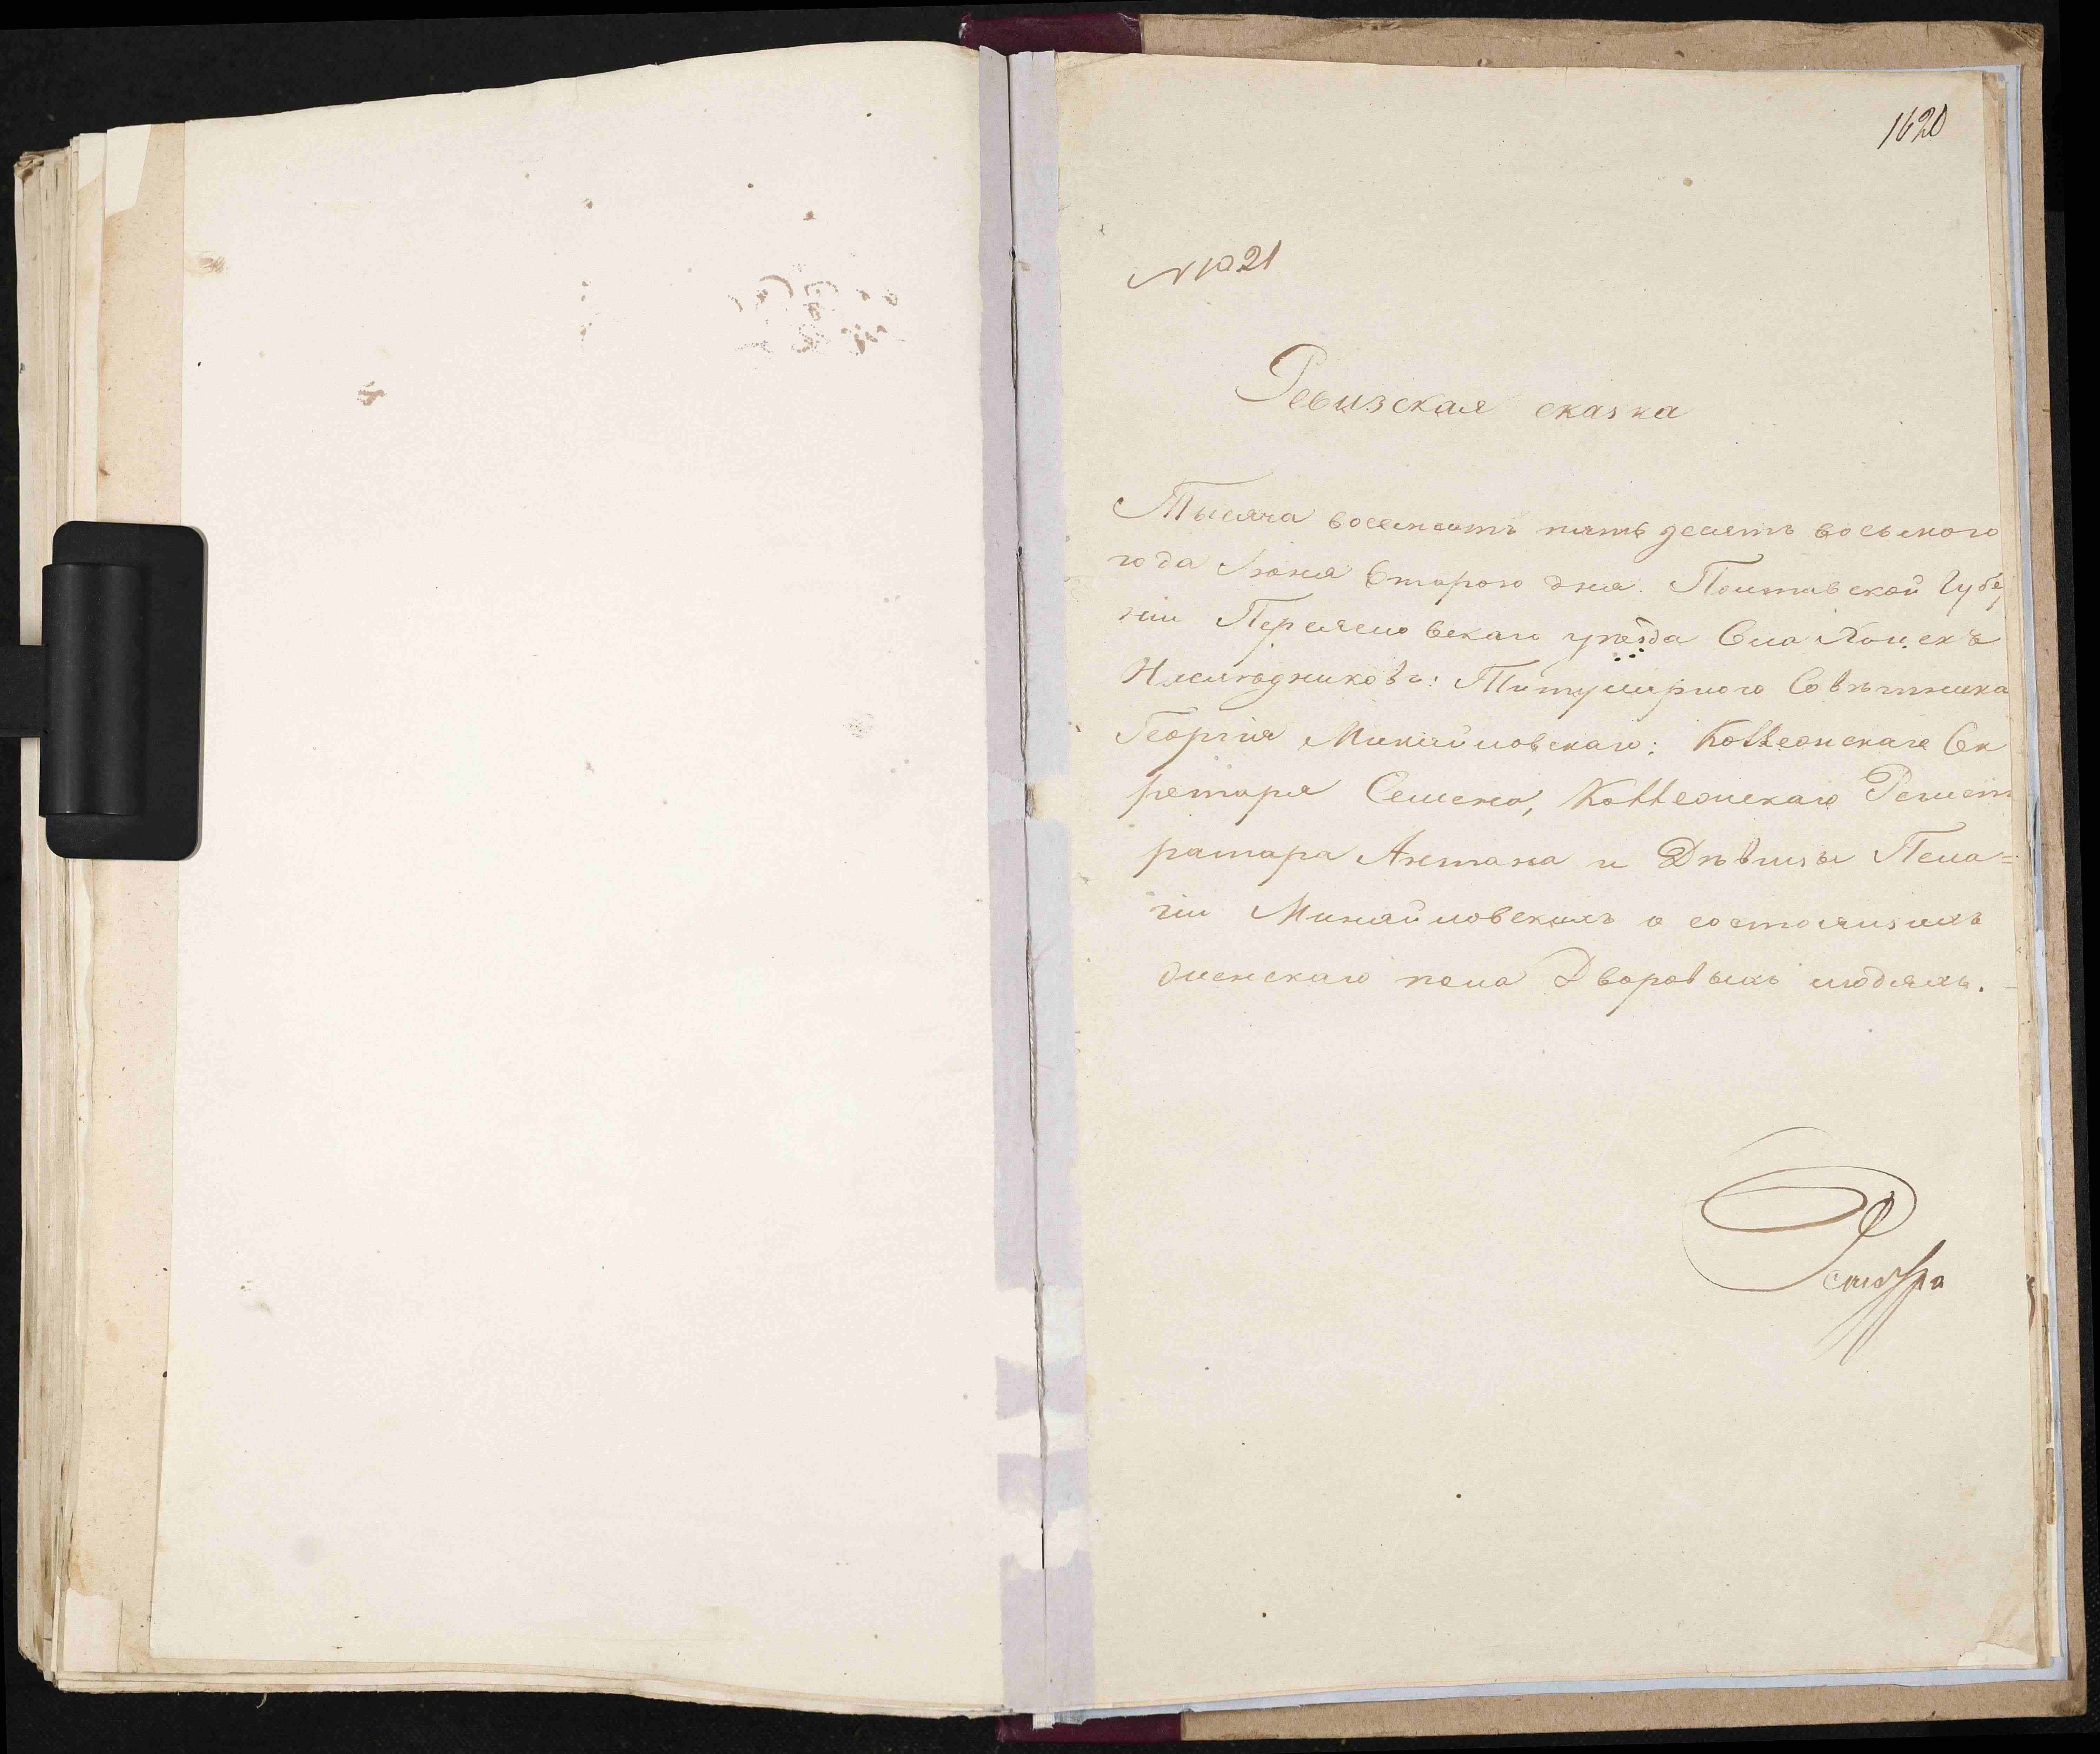 1620
№ 1021
Ревизская сказка
Тысяча восемсотъ пятьдесятъ восьмого
года Іюня второго дня. Полтавской Губе
ніи Переяславскаго уѣзда Села Хоцекъ
Наслѣдниковъ: Титулярного Совѣтника
Георгія Михайловскаго: Коллежскаго Сек
ретаря Семена, Коллежскаго Регист
ратора Антона и Дѣвицы Пела=
гіи Михайловскихъ о состоящихъ
женскаго пола Дворовыхъ людяхъ.